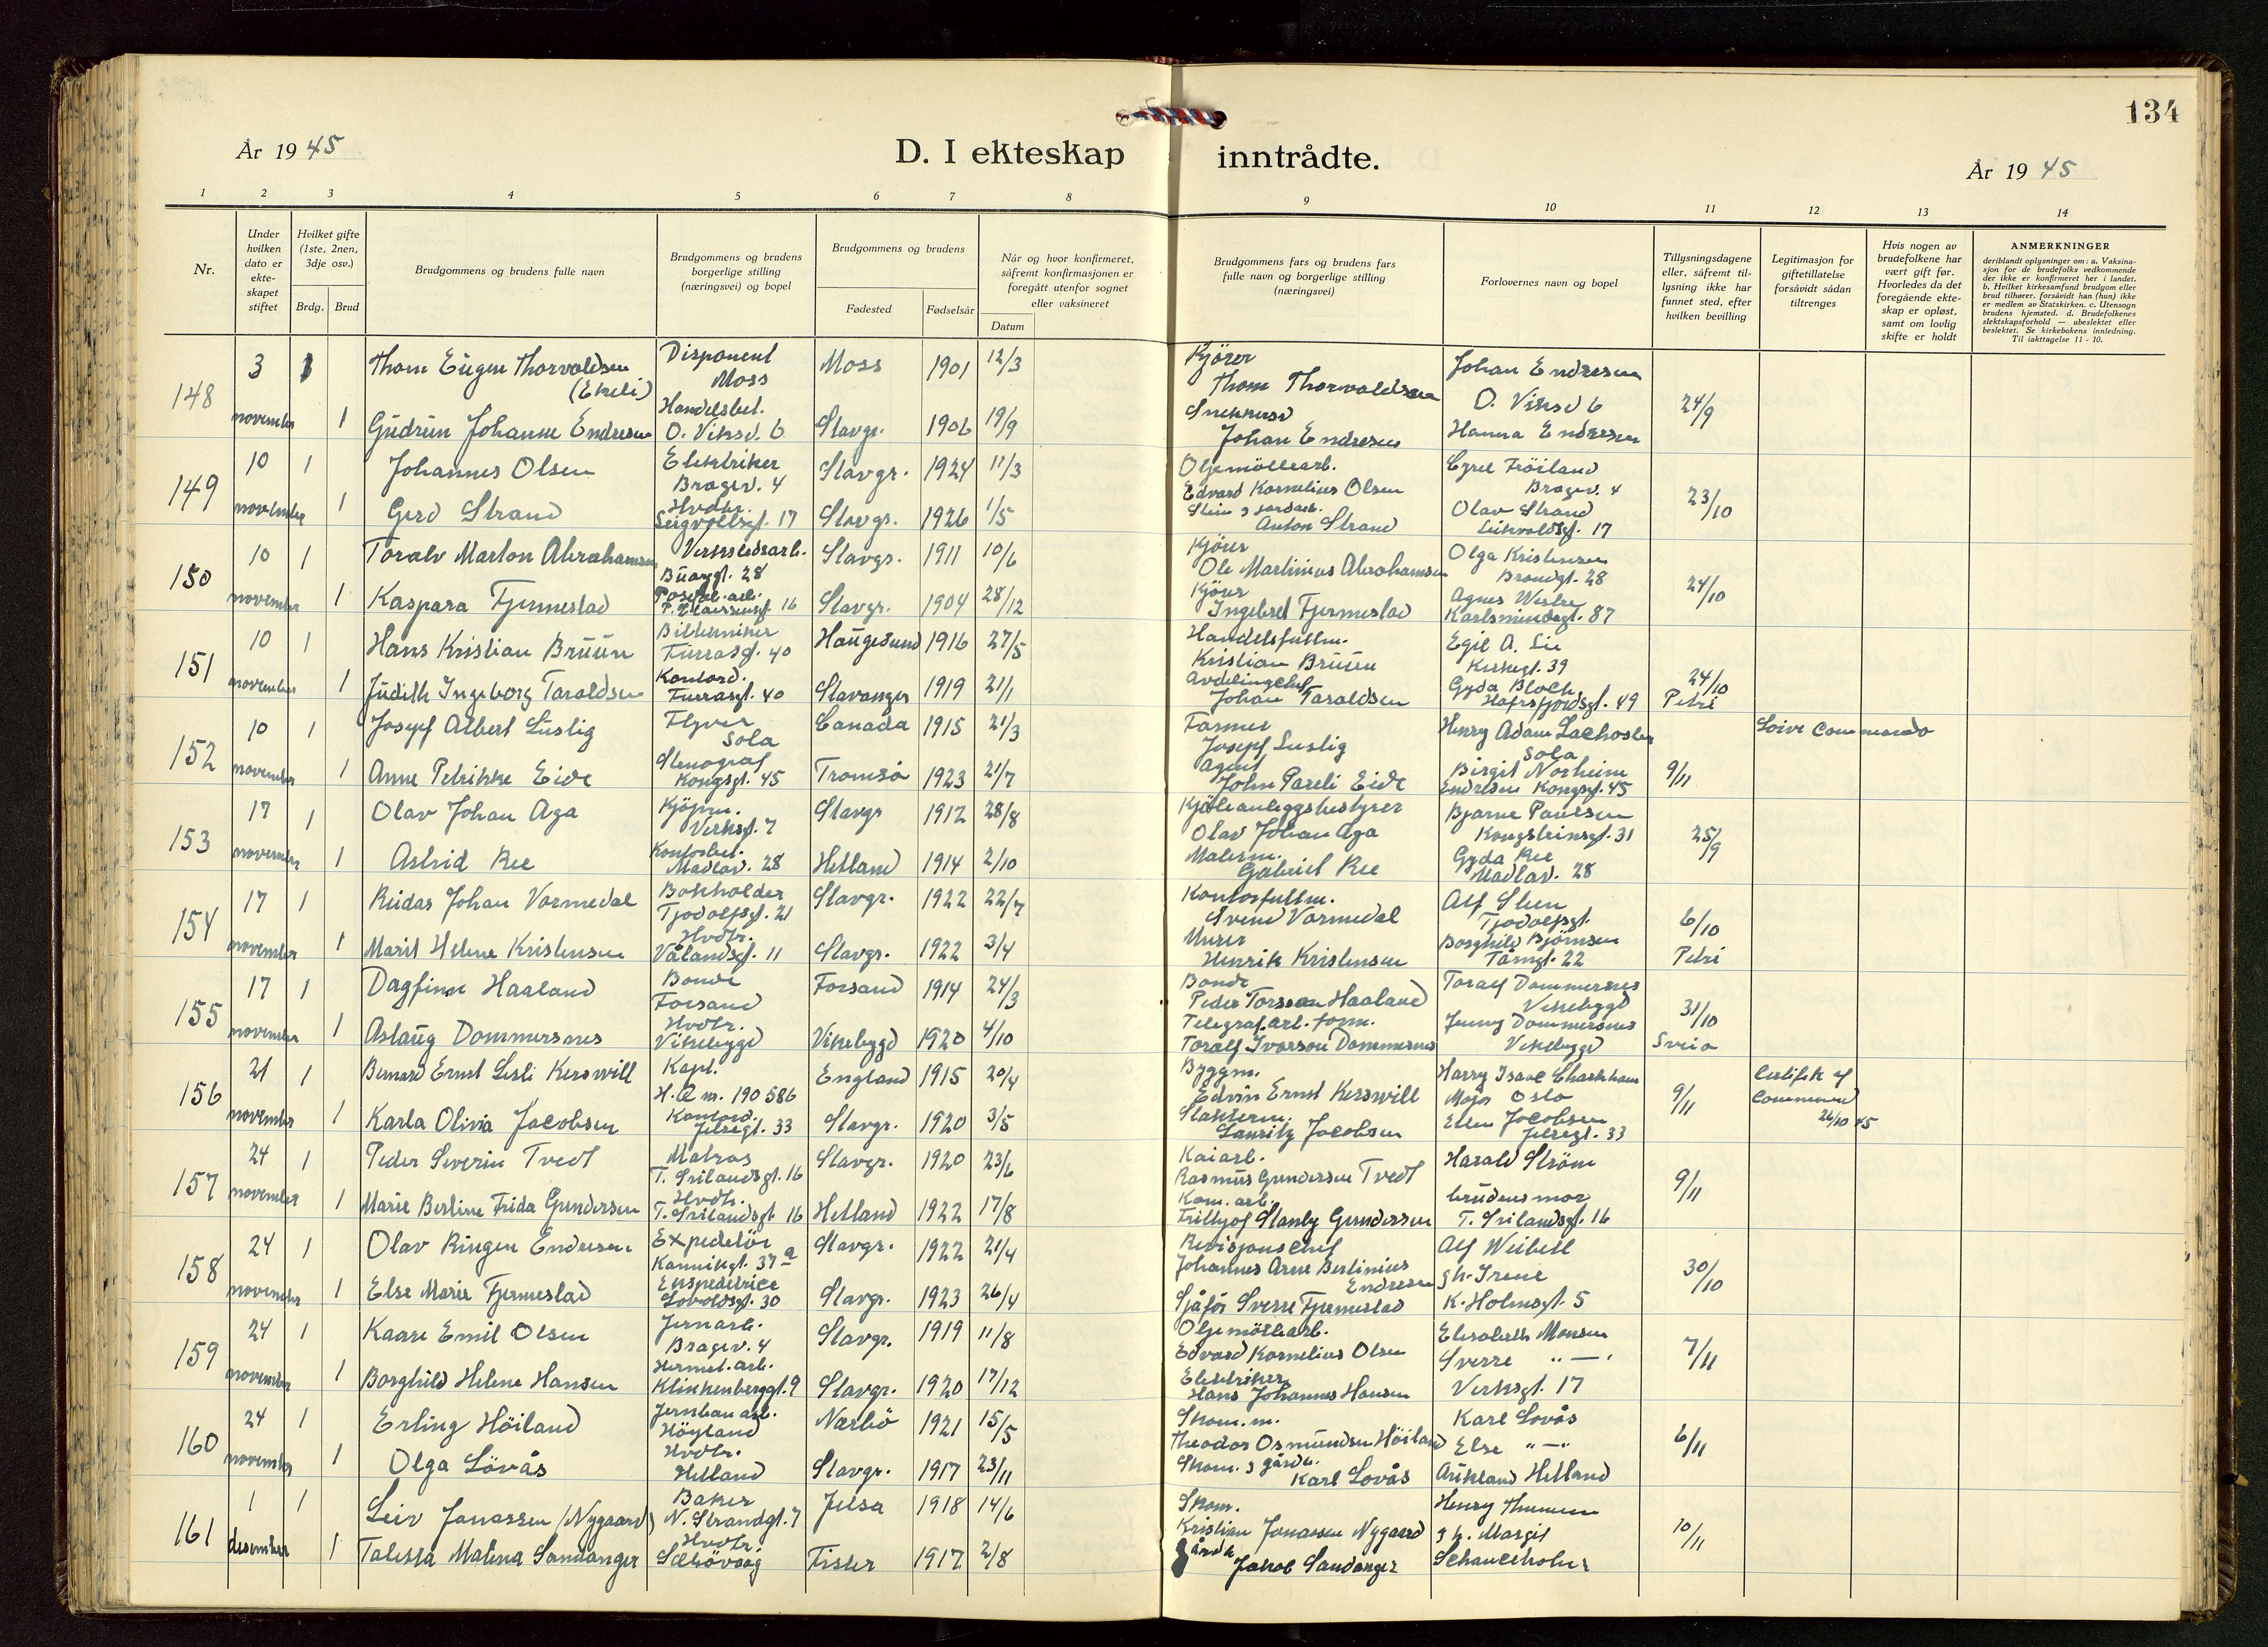 134
År 1945
D. I ekteskap inntrådte.
År 1945
1 2 3 4 5 6 7 8 9 10 11 12 13 14
Nr.
Under hvilken dato er ekte-skapet stiftet
Hvilket gifte (1ste, 2nen, 3dje osv.)
Brdg. Brud
Brudgommens og brudens fulle navn
Brudgommens og brudens borgerlige stilling (næringsvei) og bopel
Brudgommens og brudens
Fødested
Fødselsår
Datum
Når og hvor konfirmeret, såfremt konfirmasjonen er foregått utenfor sognet eller vaksineret
Brudgommens fars og brudens fars fulle navn og borgerlige stilling (næringsvei)
Forlovernes navn og bopel
Tillysningsdagene eller, såfremt til-lysning ikke har funnet sted, efter hvilken bevilling
Legitimasjon for giftetillatelse forsåvidt sådan tiltrenges
Hvis nogen av brudefolkene har vært gift før. Hvorledes da det foregående ekte-skap er opløst, samt om lovlig skifte er holdt
ANMERKNINGER
deriblandt oplysninger om: a. Vaksina-sjon for de brudefolks vedkommende der ikke er konfirmeret her i landet. b. Hvilket kirkesamfund brudgom eller brud tilhører, forsåvidt han (hun) ikke er medlem av Statskirken. c. Utensogn brudens hjemsted. d. Brudefolkenes slektskapsforhold — ubeslektet eller beslektet. Se kirkebokens innledning. Til iakttagelse 11 - 10.
148 3 november 1 Thom Eugen Thorvaldsen (Ekeli) Disponent Moss Moss 1901 12/3 Kjörer Thom Thorvaldsen Johan Endresen O. Viksd 6 24/9
1 Gudrun Johanne Endresen Handelsbet. O. Viksv. 6 Stavgr. 1906 19/9 Snekkersv Johan Endresen Hanna Endresen
149 10 november 1 Johannes Olsen Elektriker Bragev. 4 Stavgr. 1924 11/3 Oljemöllearb. Edvard Kornelius Olsen Bragev. 4 23/10
1 Gerd Strand Hvdtr. 17 Stavgr. 1926 1/5 Anton Strand Olav Strand 17
150 10 november 1 Toralv Marton Abrahamsen Verkstedsarb. 28 Stavgr. 1911 10/6 Kjörer Ole Martinius Abrahamsen Olga Kristensen 28 24/10
1 Kaspara Fjermestad 16 Stavgr. 1904 28/12 Kjörer Ingebret Fjermestad Agnes Karlsminnegt. 87
151 10 november 1 Hans Kristian Bruun Furrasgt. 40 Haugesund 1916 27/5 Handelsfullm. Kristian Bruun Egil A. Lie Kirkegt. 39 24/10 Petri
1 Judith Ingeborg Taraldsen Kontord. Furrasgt. 40 Stavanger 1919 21/1 Avdelingchef Johan Taraldsen Gyda Bloch, Hafrsfjordsgt. 49
152 10 november 1 Josepf Albert Luslig Flyver Sola Canada 1915 21/3 Farmer Josepf Luslig Henry Adam Sola 9/11
1 Anne Petrikke Eide Stenograf Kongsgt. 45 Tromsö 1923 21/7 Agent John Pareli Eide Birgit Norheim Endresen Kongsgt. 45
153 17 november 1 Olav Johan Aga Kjöpm. Verksgt. 7 Stavgr 1912 28/8 Kjöleanleggsbestyrer Olav Johan Aga Bjarne Paulsen Kongsteinsgt. 31 25/9
1 Astrid Ree Kontorbet. Madlav. 28 Hetland 1914 2/10 Malerm. Gabriel Ree Gyda Ree Madlav. 28
154 17 november 1 Reidar Johan Vormedal Bokholder Tjodolfsgt. 21 Stavgr. 1922 22/7 Kontorfullm. Svend Vormedal Alf Steen Tjodolfsgt. 6/10 Petri
1 Marit Helene Kristensen Hvdtr. Vålandsgt. 11 Stavgr. 1922 3/4 Murer Henrik Kristensen Borghild Björnsen Tårngt. 22
155 17 november 1 Dagfinn Haaland Bonde Forsand Forsand 1914 24/3 Bonde Peder Torsson Haaland Toralf Dommersnes Vikebygd 31/10 Sveio
1 Aslaug Dommersnes Hvdtr. Vikebygd Vikebygd 1920 4/10 Telegraf.arb. form. Toralf Ivarson Dommersnes Jenny Dommersnes Vikebygd
156 21 november 1 Bernard Ernst Lesli Kerswill Kapt. H.Q nr. 190586 England 1915 20/4 Byggm. Edvin Ernst Kerswill Harry Isaac Major Oslo 9/11 Certifik of Command 26/10 45
1 Karla Olivia Jacobsen Kontord. Jelsegt. 33 Stavgr. 1920 3/5 Slakterm. Lauritz Jacobsen Ellen Jacobsen Jelsegt. 33
157 24 november 1 Peder Severin Tvedt Matros 16 Stavgr. 1920 23/6 Kaiarb. Rasmus Gundersen Tvedt Harald Ström 9/11
1 Marie Berline Frida Gundersen Hvdtr. 16 Hetland 1922 17/8 Kom. arb. Frithjof Stanly Gundersen brudens mor 16
158 24 november 1 Olav Ringen Endresen Expeditör Kannikgt. 37 a Stavgr. 1922 21/4 Revisjonschef Johannes Arne Bertinius Endresen Alf Weibell 30/10
1 Else Marie Fjermestad Expeditrice 30 Stavgr. 1923 26/4 Sjåför Sverre Fjermestad g h. Irene K. Holmsgt. 5
159 24 november 1 Kaare Emil Olsen Jernarb. Bragev. 4 Stavgr. 1919 11/8 Oljemöllearb. Edvard Kornelius Olsen Elisabeth Monsen Sverre " — " 7/11
1 Borghild Helene Hansen Hermet.arb. Klinkenberggt. 9 Stavgr. 1920 17/12 Elektriker Hans Johannes Hansen Verksgt. 17
160 24 november 1 Erling Höiland Jernbanearb. Höyland Nærbö 1921 15/5 Skom.m. Theodor Osmundsen Höiland Karl Lovås Else " — " 6/11
1 Olga Lövås Hvdtr. Hetland Stavgr. 1917 23/11 Skom. g gårdb. Karl Lovås Aukland Hetland
161 1 desember 1 Leiv Jonassen (Nygaard) Baker N. Strandgt. 7 Jelsa 1918 14/6 Skom. Kristian Jonassen Nygaard Henry g h. Margit 10/11
1 Malena Sandanger Hvdtr. Fister 1917 2/8 Jakob Sandanger